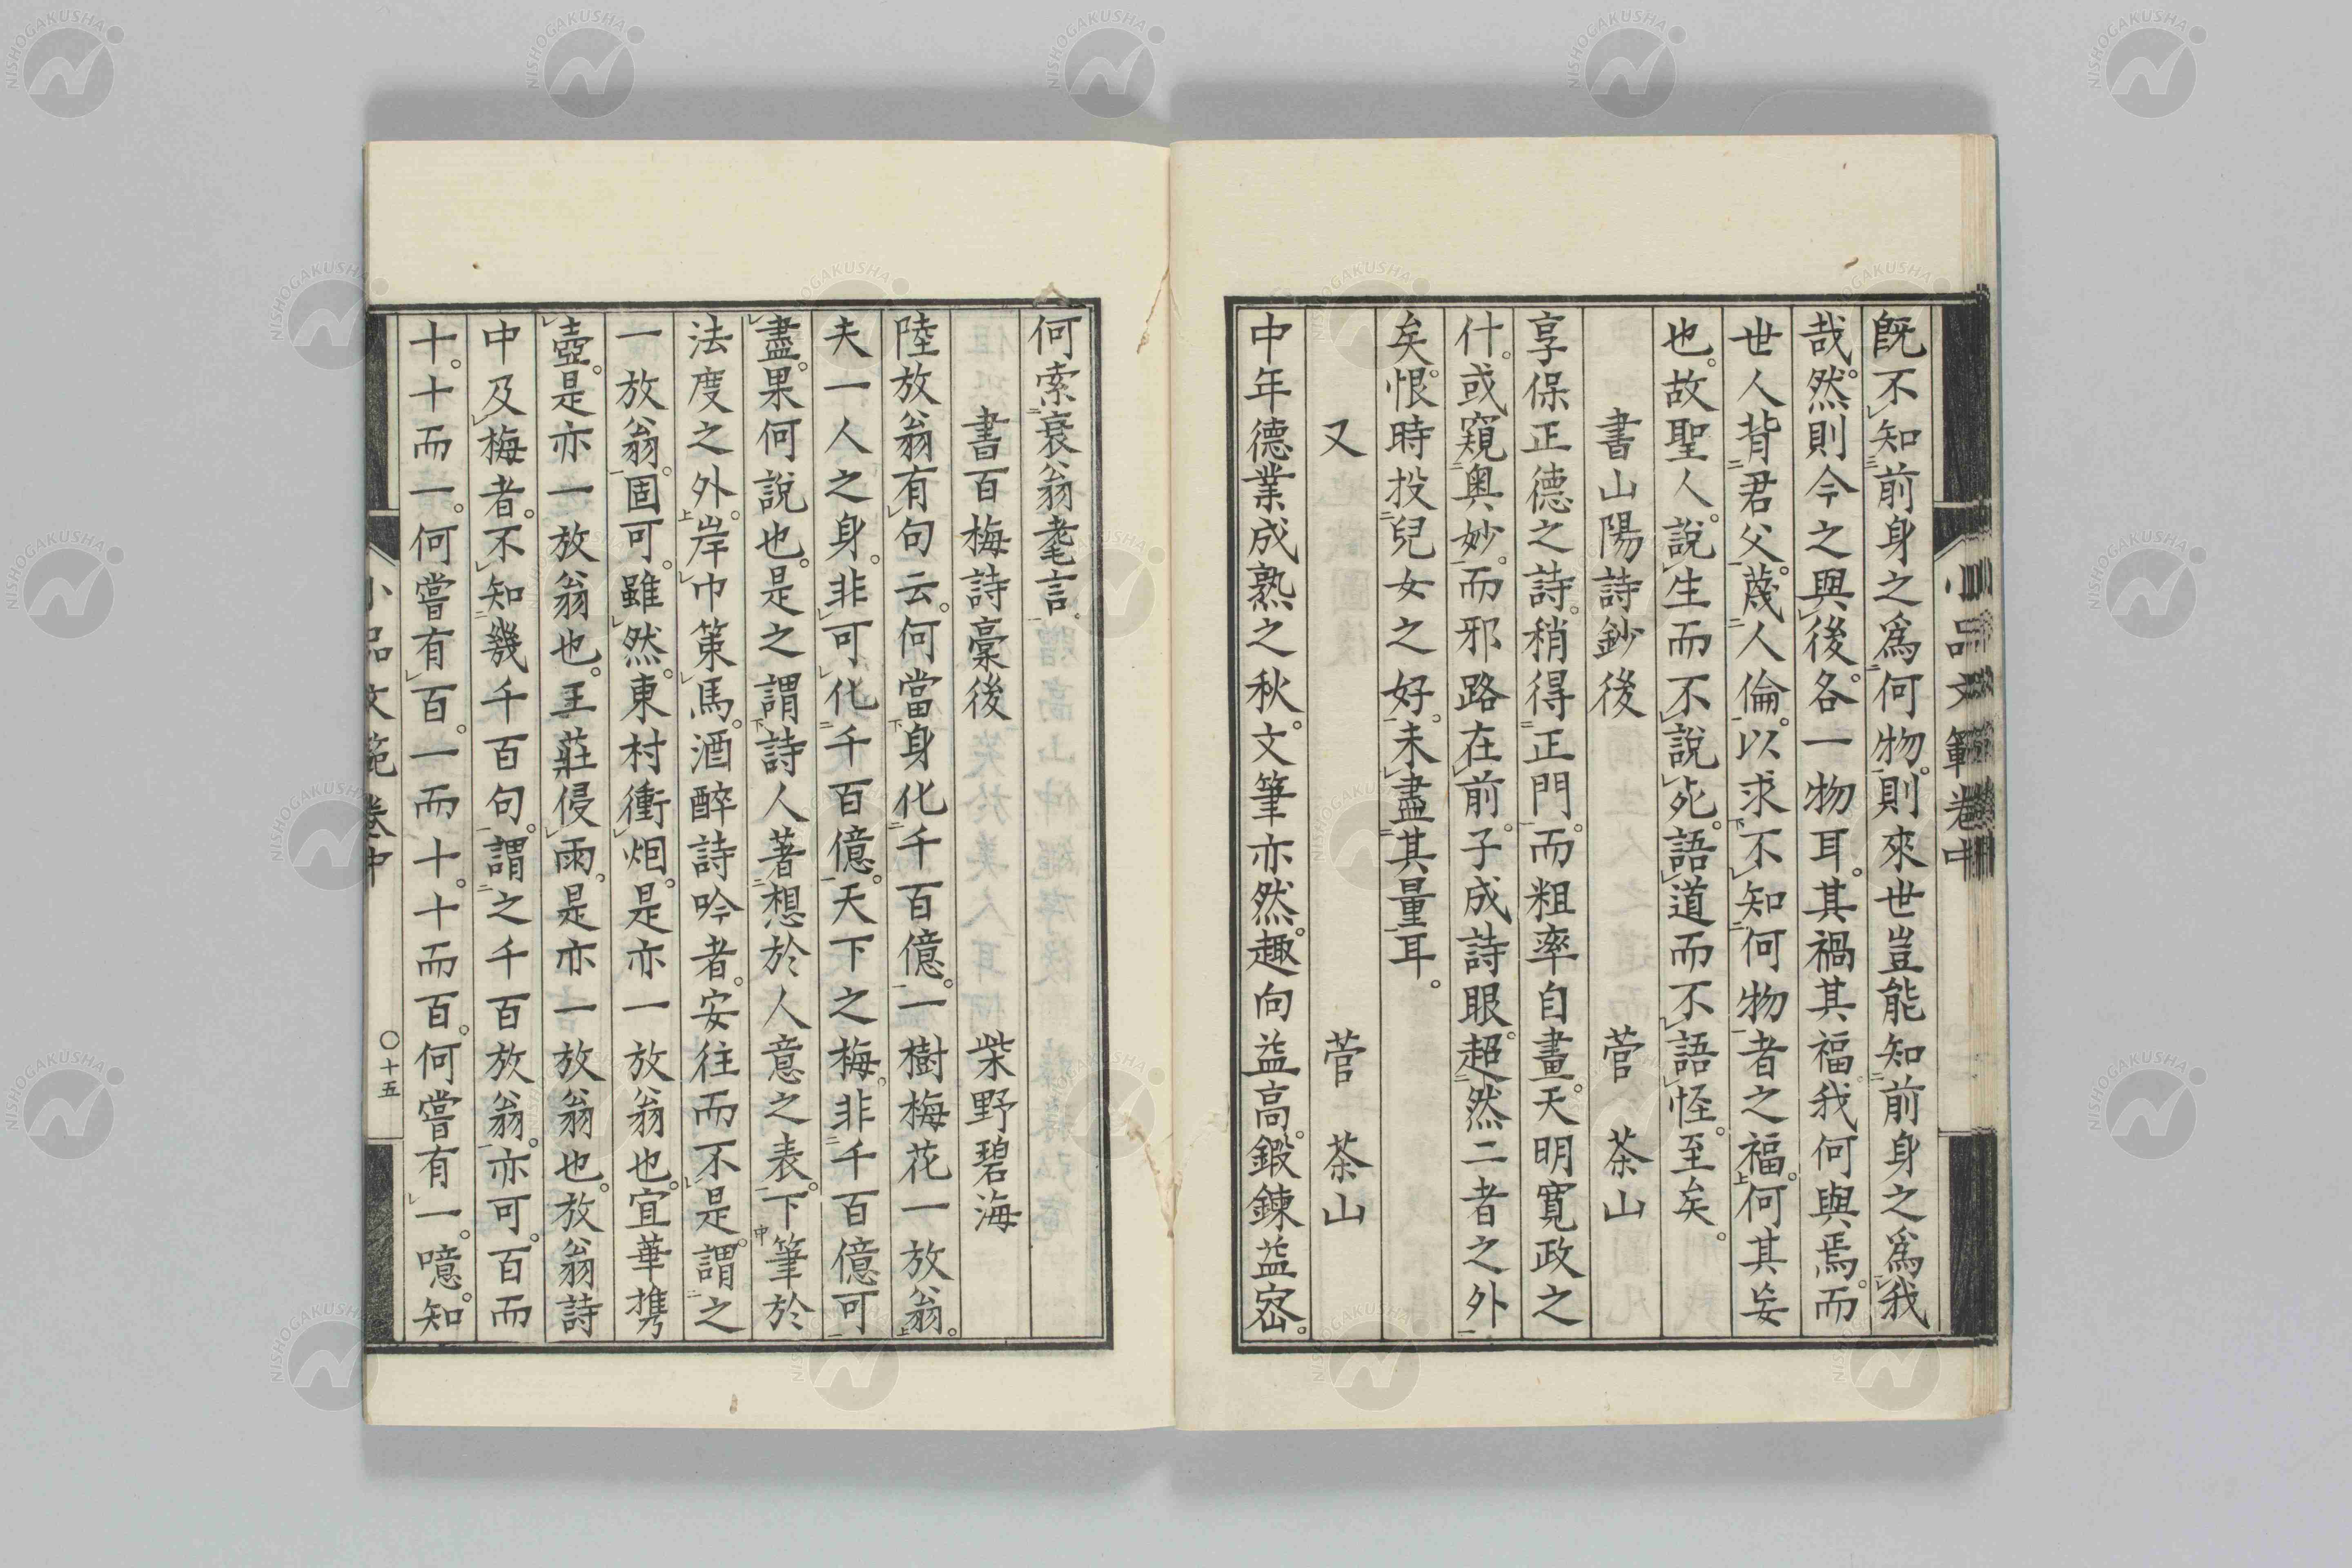 小品文範卷中
既不知前身之爲何物。則來世豈能知前身之爲我
哉。然則今之與後。各一物耳。其禍其福。我何與焉。而
世人背君父。蔑人倫。以求不知何物者之福。何其妄
也。故聖人。說生而不說死。語道而不語怪。至矣。
書山陽詩鈔後 菅 茶山
享保正德之詩。稍得正門。而粗率自畫。天明寬政之
什。或窺奧妙。而邪路在前。子成詩眼。超然二者之外
矣。恨時投兒女之好。未盡其量耳。
又 菅 茶山
中年德業成熟之秋。文筆亦然。趣向益高。鍛鍊益密。
何索衰翁耄言。
書百梅詩稾後 柴野碧海
陸放翁有句云。何當身化千百億。一樹梅花一放翁。
夫一人之身。非可化千百億。天下之梅。非千百億可
盡。果何說也。是之謂詩人著想於人意之表。下筆於
法度之外。岸巾策馬。酒醉詩吟者。安往而不是。謂之
一放翁。固可。雖然。東村衝烟。是亦一放翁也。宜華携
壺。是亦一放翁也。王莊侵雨。是亦一放翁也。放翁詩
中及梅者。不知幾千百句。謂之千百放翁。亦可。百而
十。十而一。何嘗有百。一而十。十而百。何嘗有一。噫。知
小品文範 卷中 〇十五
NISHOGAKUSHA